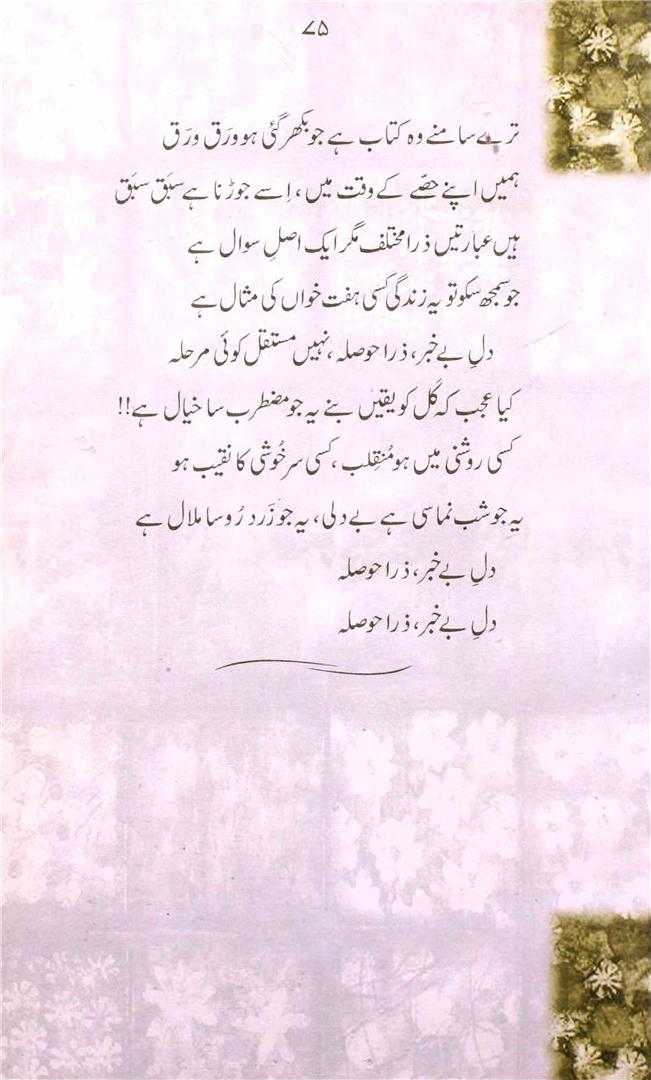 ۷۵
ترے سامنے وہ کتاب ہے جو بکھر گئی ہو ورَق ورَق
ہمیں اپنے حصّے کے وقت میں، اِسے جوڑنا ہے سبَق سبَق
ہیں عبارتیں ذرا مختلف مگر ایک اصلِ سوال ہے
جو سمجھ سکو تو یہ زندگی کسی ہفت خواں کی مثال ہے
دلِ بے خبر، ذرا حوصلہ، نہیں مستقل کوئی مرحلہ
کیا عجب کہ کَل کو یقیں بنے یہ جو مضطرب سا خیال ہے!!
کسی روشنی میں ہو مُنقلِب، کسی سرخُوشی کا نقیب ہو
یہ جو شب نما سی ہے بے دلی، یہ جو زَرد رُو سا ملال ہے
دلِ بے خبر، ذرا حوصلہ
دلِ بے خبر، ذرا حوصلہ